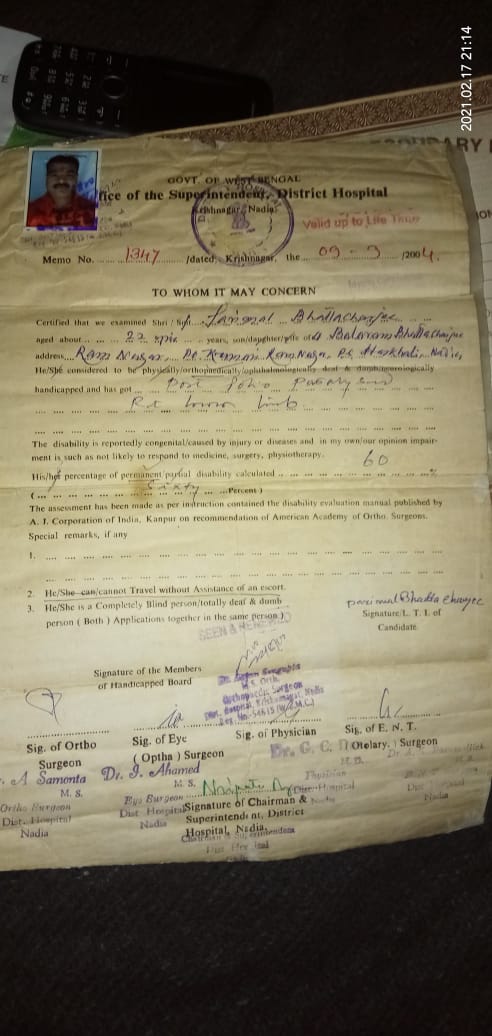 2021.02.17 21:14
GOVT. OF WEST BENGAL
Office of the Superintendent, District Hospital
Krishnagar, Nadia
Valid up to Life Time
Memo No. 1347 /dated, Krishnagar, the 09-3 /2004.
TO WHOM IT MAY CONCERN
Certified that we examined Shri / Smt. Parimal Bhattacharjee
aged about 22 years, son/daughter/wife of Balaram Bhattacharjee
address Ram Nagar Ramnagar PS Hanskhali, Nadia,
He/She considered to be physically/orthopaedically/ophthalmologically deaf & dumb/neurologically
handicapped and has got Post Polio
Rt Lower Limb
The disability is reportedly congenital/caused by injury or diseases and in my own/our opinion impair-
ment is such as not likely to respond to medicine, surgery, physiotherapy.
His/her percentage of permanent/partial disability calculated 60 %
( Sixty Percent )
The assessment has been made as per instruction contained the disability evaluation manual published by
A. J. Corporation of India, Kanpur on recommendation of American Academy of Ortho. Surgeons.
Special remarks, if any
1.
2. He/She can/cannot Travel without Assistance of an escort.
3. He/She is a Completely Blind person/totally deaf & dumb
person ( Both ) Applications together in the same person )
Parimal Bhattacharjee
Signature/L. T. I. of
Candidate.
SEEN & RENEWED
Signature of the Members
of Handicapped Board
M.S. Orth.
Orthopaedic Surgeon
Dist. Hospital, Krishnanagar, Nadia
Sig. of Ortho
Surgeon
Sig. of Eye
( Optha ) Surgeon
Sig. of Physician
Sig. of E. N. T.
( Otolary. ) Surgeon
A Samonta
M. S.
Ortho Surgeon
Dist. Hospital
Nadia
Dr. I. Ahamed
M. S.
Eye Surgeon
Dist Hospital
Nadia
Dr. G. C.
M.D.
Physician
Dist-Hospital
Nadia
Nadia
Signature of Chairman &
Superintendent, District
Hospital, Nadia.
Chairman & Superintendent
Dist Hospital